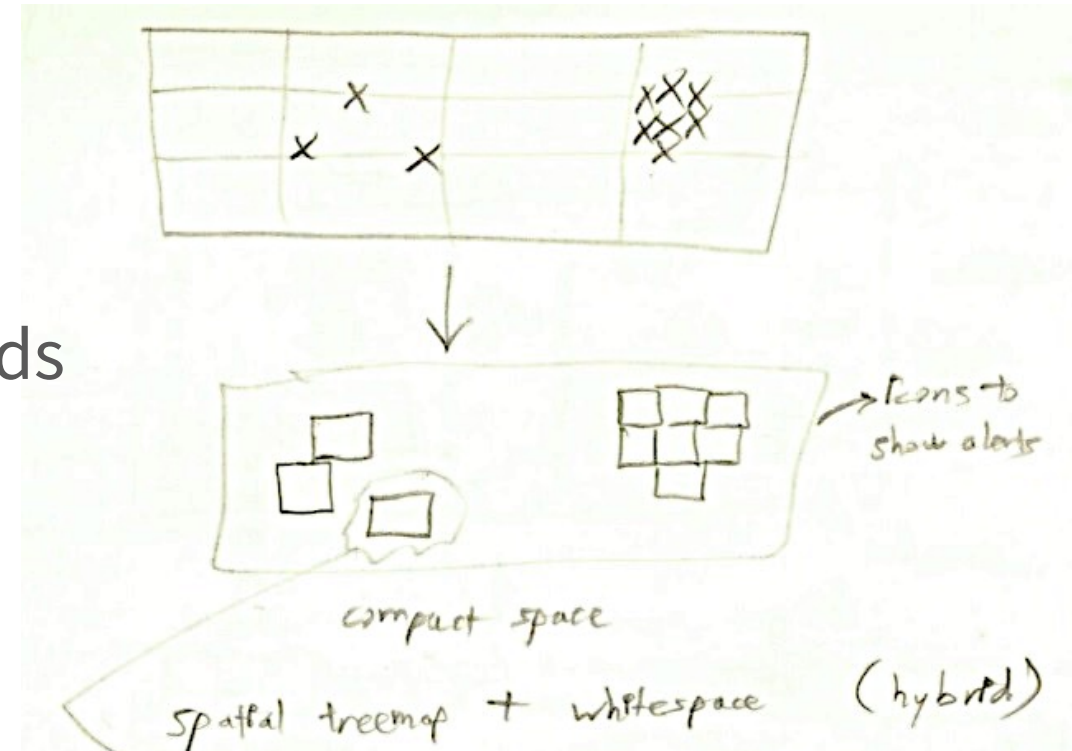 ds
Icons to
show alerts
compact space
spatial treemap + whitespace (hybrid)